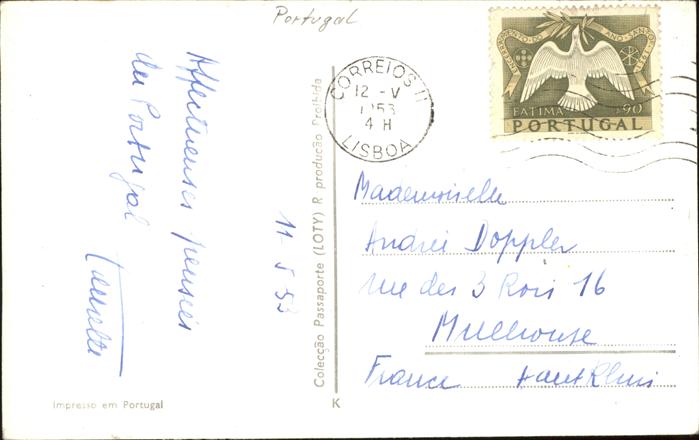 Portugal
Affectueuses pensées
du Portugal
11 5 53
Impresso em Portugal
Colecção Passaporte (LOTY) R produção Proibida
K
CORREIOS 11
12 - V
1953
4 H
LISBOA
ENCERRAMENTO DO ANO SANTO
FATIMA $90
PORTUGAL
Mademoiselle
Andrée Doppler
rue des 3 Rois 16
Mulhouse
France Haut Rhin